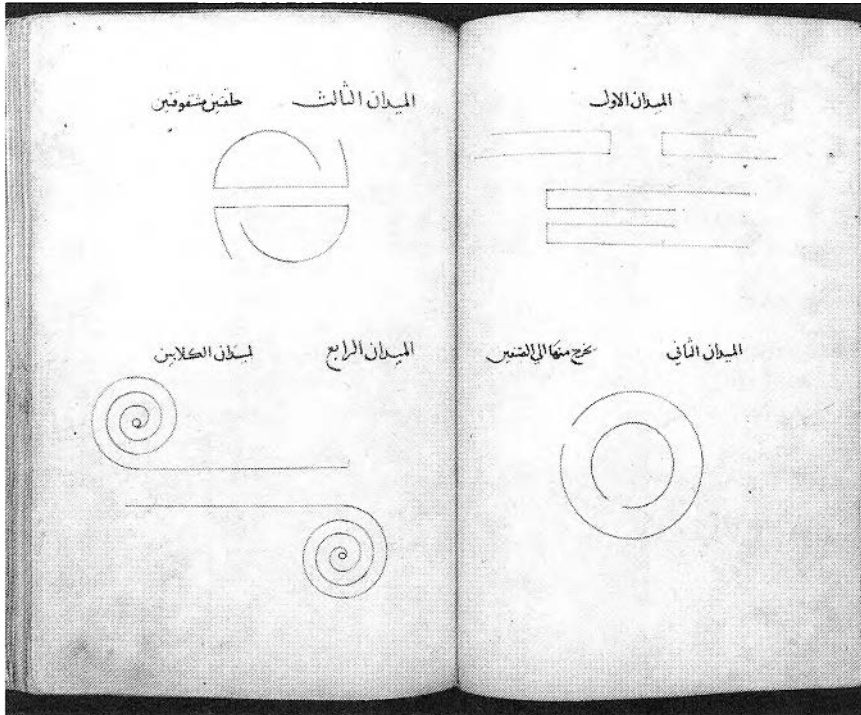 الميدان الاول
الميدان الثاني يخرج منها الى
الميدان الثالث حلقتين مشقوقتين
الميدان الرابع لميدان الكلابين